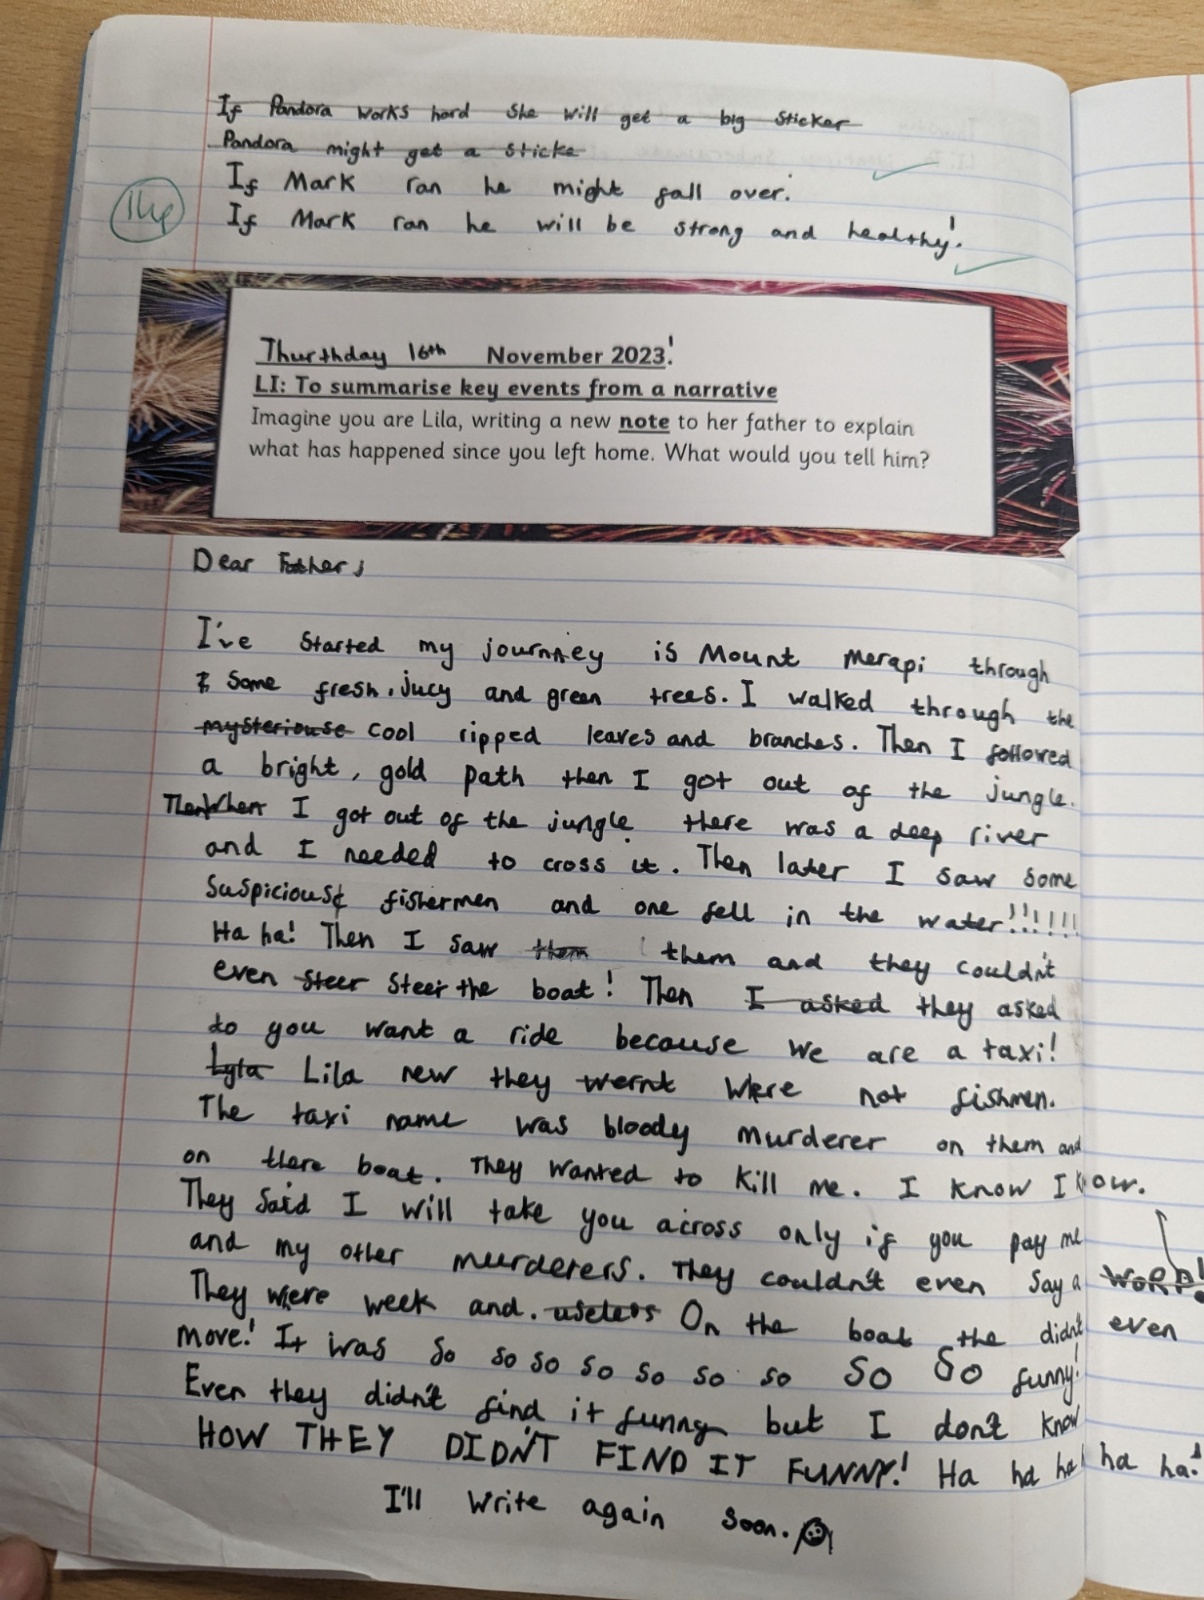 If Pandora works hard she will get a big sticker
Pandora might get a sticke
If Mark ran he might fall over.
If Mark ran he will be strong and healthy!
Thurthday 16th November 2023!
LI: To summarise key events from a narrative
Imagine you are Lila, writing a new note to her father to explain
what has happened since you left home. What would you tell him?
Dear Father,
I've started my journey is Mount Merapi through
some fresh, jucy and green trees. I walked through the
mysteriouse cool ripped leaves and branches. Then I followed
a bright, gold path then I got out of the jungle.
Then When I got out of the jungle there was a deep river
and I needed to cross it. Then later I saw some
suspicious fishermen and one fell in the water!!!!!!!
Ha ha! Then I saw them them and they couldn't
even steer steer the boat! Then I asked they asked
do you want a ride because we are a taxi!
Lyla Lila new they wernt were not fishmen.
The taxi name was bloody murderer on them and
on there boat. They wanted to kill me. I know I know.
They said I will take you across only if you pay me
and my other murderers. They couldn't even say a WORD!
They were week and. useless On the boat the didn't even
move! It was so so so so so so so so so funny!
Even they didn't find it funny but I don't know
HOW THEY DIDN'T FIND IT FUNNY! Ha ha ha ha ha!
I'll write again soon.